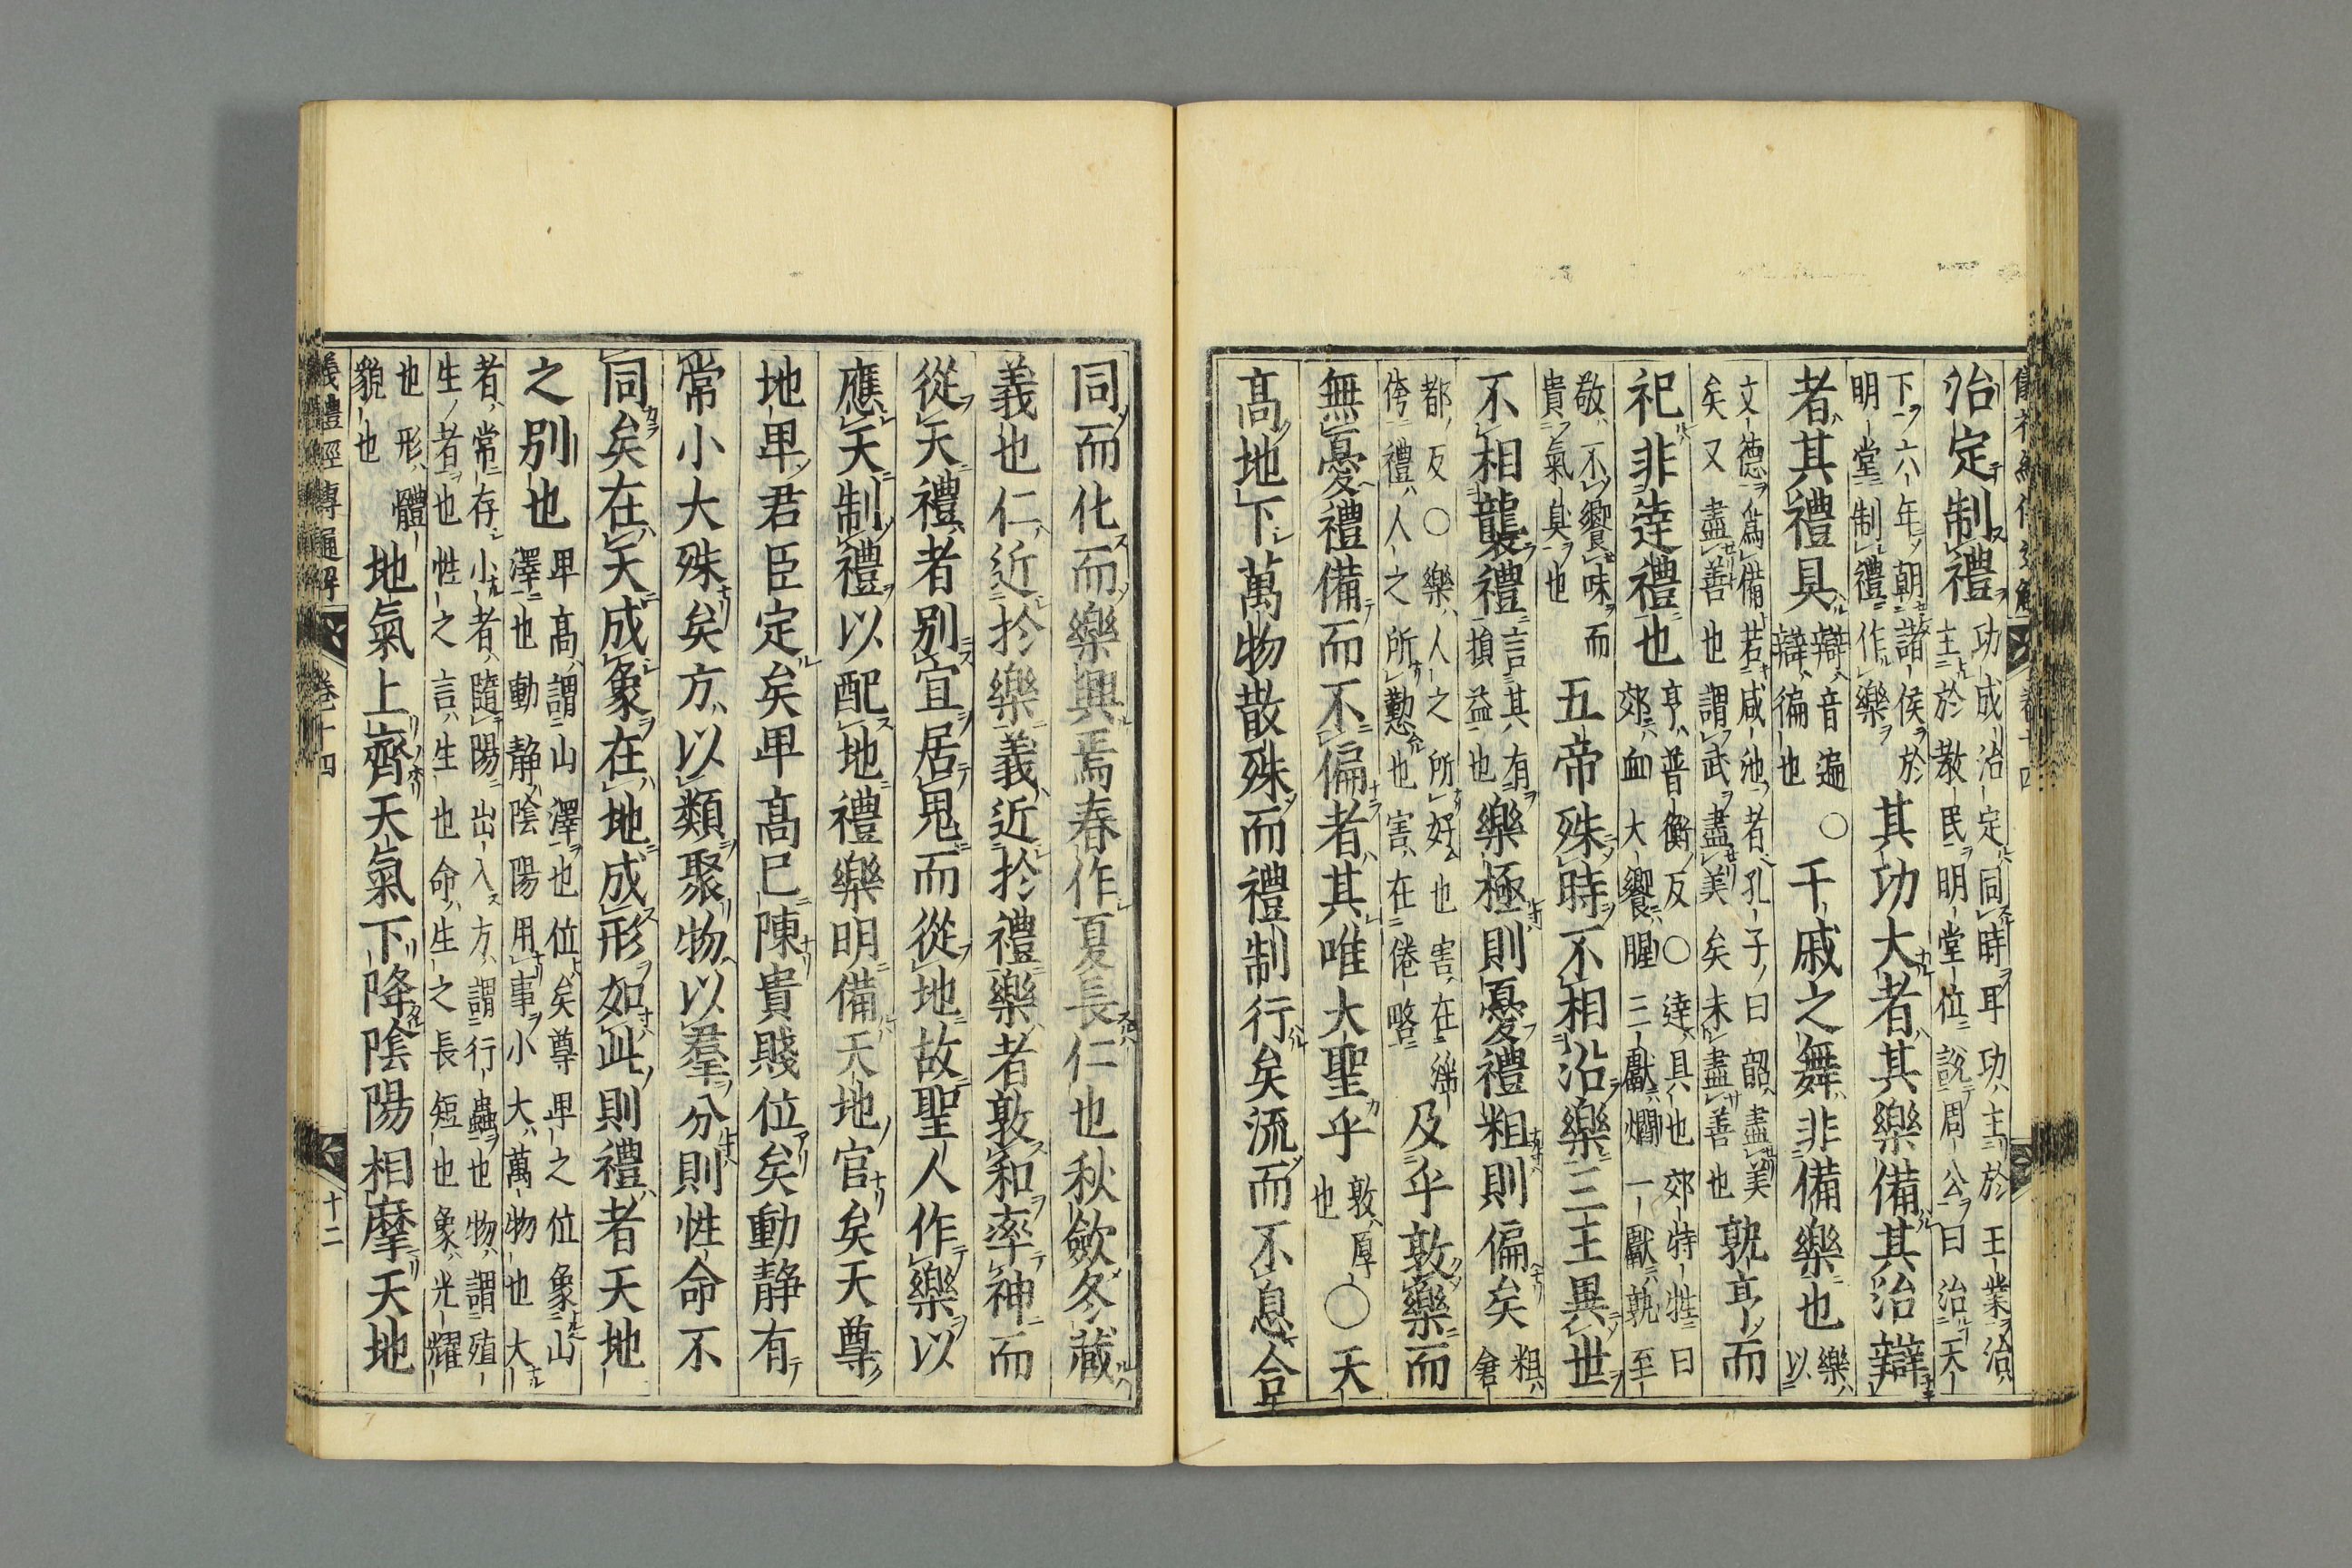 治定制禮功成治定同時耳功主於王業治主於教民明堂位說周公曰治天
下六年朝諸侯於明堂制禮作樂其功大者其樂備其治辯
者其禮具辯音遍辯徧也○干戚之舞非備樂也樂以
文德爲備若咸池者孔子曰韶盡美矣又盡善也謂武盡美矣未盡善也孰亨而
祀非達禮也亨普衡反○達具也郊特牲曰郊血大饗腥三獻爓一獻孰至
敬不饗味而貴氣臭也五帝殊時不相沿樂三王異世
不相襲禮言其有損益也樂極則憂禮粗則偏矣粗倉
都反○樂人之所好也害在淫侉禮人之所勤也害在倦略及乎敦樂而
無憂禮備而不偏者其唯大聖乎敦厚也○天
高地下萬物散殊而禮制行矣流而不息合
同而化而樂興焉春作夏長仁也秋斂冬藏
義也仁近於樂義近於禮樂者敦和率神而
從天禮者別宜居鬼而從地故聖人作樂以
應天制禮以配地禮樂明備天地官矣天尊
地卑君臣定矣卑高已陳貴賤位矣動靜有
常小大殊矣方以類聚物以羣分則性命不
同矣在天成象在地成形如此則禮者天地
之別也卑高謂山澤也位矣尊卑之位象山澤也動靜陰陽用事小大萬物也大
者常存小者隨陽出入方謂行蟲也物謂殖生者也性之言生也命生之長短也象光耀
也形體貌也地氣上齊天氣下降陰陽相摩天地
儀禮經傳通解 卷十四 十二